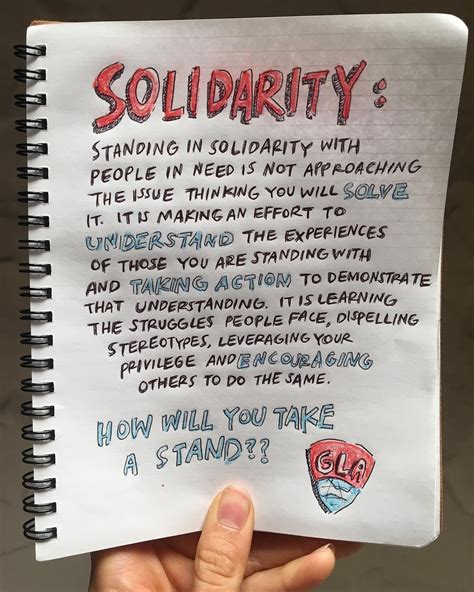 SOLIDARITY:
STANDING IN SOLIDARITY WITH
PEOPLE IN NEED IS NOT APPROACHING
THE ISSUE THINKING YOU WILL SOLVE
IT. IT IS MAKING AN EFFORT TO
UNDERSTAND THE EXPERIENCES
OF THOSE YOU ARE STANDING WITH
AND TAKING ACTION TO DEMONSTRATE
THAT UNDERSTANDING. IT IS LEARNING
THE STRUGGLES PEOPLE FACE, DISPELLING
STEREOTYPES, LEVERAGING YOUR
PRIVILEGE AND ENCOURAGING
OTHERS TO DO THE SAME.
HOW WILL YOU TAKE
A STAND??
GLA